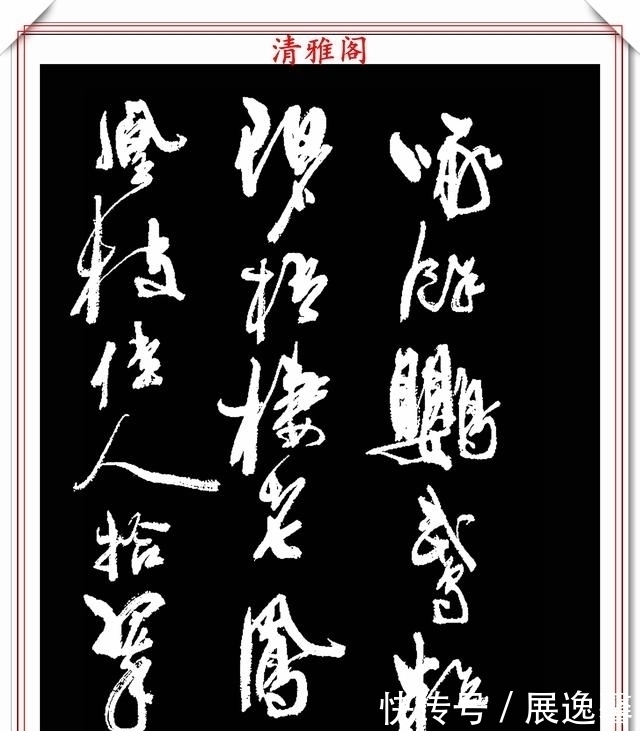 清雅阁
啄餘鸚鵡粒
碧梧棲老鳳
凰枝佳人拾翠
快传号 / 展逸馨